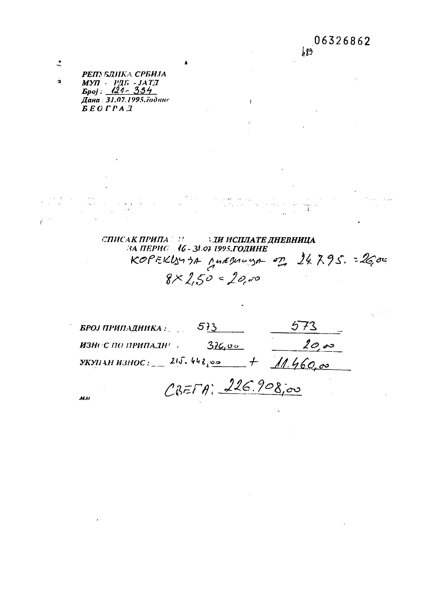 06326862
489
РЕПУБЛИКА СРБИЈА
МУП - РДБ - ЈАТД
Број: 120-334
Дана 31.07.1995.године
БЕОГРАД
СПИСАК ПРИПА ДИ ИСПЛАТЕ ДНЕВНИЦА
ЗА ПЕРИО 16-31.07.1995.ГОДИНЕ
КОРЕКЦИЈА ДНЕВНИЦА ОД 24.7.95. = 26,00
8 x 2,50 = 20,00
БРОЈ ПРИПАДНИКА: 573 573
ИЗНОС ПО ПРИПАДН. 376,00 20,00
УКУПАН ИЗНОС: 215.448,00 + 11.460,00
СВЕГА: 226.908,00